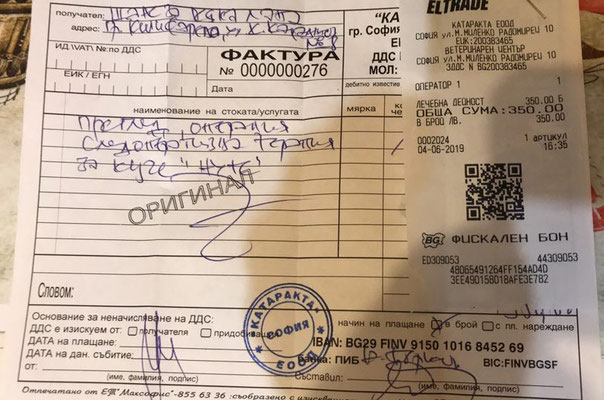 получател:
адрес:
ИД.\VAT\ № по ДДС
ЕИК / ЕГН
ФАКТУРА
№ 0000000276
Дата
"КА
гр. София
ДДС
МОЛ:
дебитно известие
наименование на стоката/услугата
мярка
Преглед, операция
за куче
ОРИГИНАЛ
Словом:
Основание за неначисляване на ДДС:
ДДС е изискуем от:
получателя
придоби
ДАТА НА ПЛАЩАНЕ:
ДАТА НА ДАН. СЪБИТИЕ:
(име, фамилия, подпис)
"КАТАРАКТА"
СОФИЯ
ЕООД
начин на плащане
в брой
с пл. нареждане
IBAN: BG29 FINV 9150 1016 8452 69
Банка: ПИБ
BIC:FINVBGSF
Съставил:
(име, фамилия, подпис)
Отпечатано от ЕТ "Максофис"-855 63 36
ELTRADE
КАТАРАКТА ЕООД
СОФИЯ УЛ.М.МИЛЕНКО РАДОМИРЕЦ 10
ЕИК:200383465
ВЕТЕРИНАРЕН ЦЕНТЪР
СОФИЯ УЛ.М.МИЛЕНКО РАДОМИРЕЦ 10
ЗДДС N BG200383465
ОПЕРАТОР 1
1
ЛЕЧЕБНА ДЕЙНОСТ 350.00 Б
ОБЩА СУМА: 350.00
В БРОЙ ЛВ. 350.00
0002024 1 артикул
04-06-2019 16:35
BG ФИСКАЛЕН БОН
ED309053 44309053
48065491264FF154AD4D
3EE490158018AFE3E782